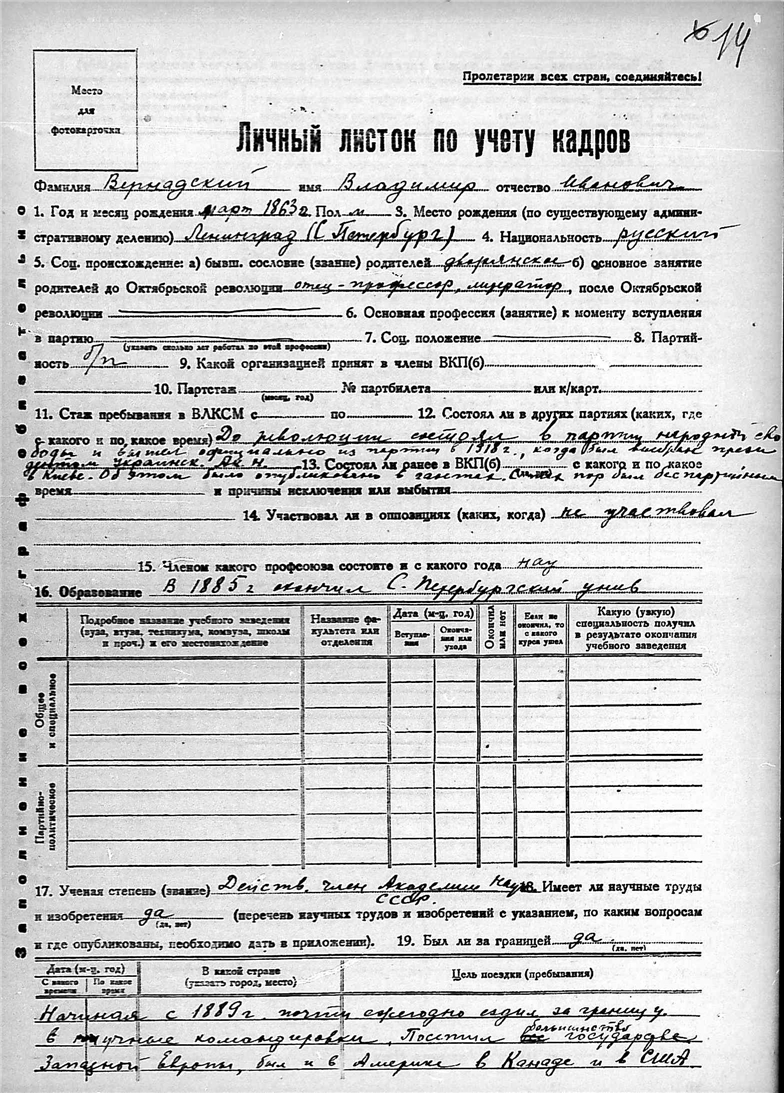 14
Пролетарии всех стран, соединяйтесь!
Место
для
фотокарточки
Личный листок по учету кадров
Фамилия Вернадский имя Владимир отчество Иванович
1. Год и месяц рождения март 1863 г. Пол м 3. Место рождения (по существующему админи-
стративному делению) Ленинград (С Петербург) 4. Национальность русский
5. Соц. происхождение: а) бывш. сословие (звание) родителей дворянское б) основное занятие
родителей до Октябрьской революции отец - профессор, литератор, после Октябрьской
революции 6. Основная профессия (занятие) к моменту вступления
в партию 7. Соц. положение 8. Партий-
(указать сколько лет работал по этой профессии)
ность б/п 9. Какой организацией принят в члены ВКП(б)
10. Партстаж № партбилета или к/карт.
(месяц, год)
11. Стаж пребывания в ВЛКСМ с по 12. Состоял ли в других партиях (каких, где
с какого и по какое время) До революции состоял в партии народной сво
боды и вышел официально из партии в 1918 г., когда был выбран прези
дентом Украинск. Ак. Н. 13. Состоял ли ранее в ВКП(б) с какого и по какое
в Киеве. Об этом было опубликовано в газетах. С тех пор был беспартийным
время и причины исключения или выбытия
14. Участвовал ли в оппозициях (каких, когда) не участвовал
15. Членом какого профсоюза состоите и с какого года
16. Образование В 1885 г окончил С-Петербургский унив
Подробное название учебного заведения
(вуза, втуза, техникума, комвуза, школы
и проч.) и его местонахождение
Название фа-
культета или
отделения
Дата (м-ц, год)
Вступле-
ния
Оконча-
ния или
ухода
Окончил
или нет
Если не
окончил, то
с какого
курса ушел
Какую (узкую)
специальность получил
в результате окончания
учебного заведения
Общее
и специальное
Партийно-
политическое
17. Ученая степень (звание) Действ. член Академии Наук 18. Имеет ли научные труды
СССР.
и изобретения да (перечень научных трудов и изобретений с указанием, по каким вопросам
(да, нет)
и где опубликованы, необходимо дать в приложении). 19. Был ли за границей да
(да, нет)
Дата (м-ц, год)
С какого
времени
По какое
время
В какой стране
(указать город, место)
Цель поездки (пребывания)
Начиная с 1889 г. почти ежегодно ездил за границу
в научные командировки. Посетил большинство государств
Западной Европы, был и в Америке в Канаде и в США